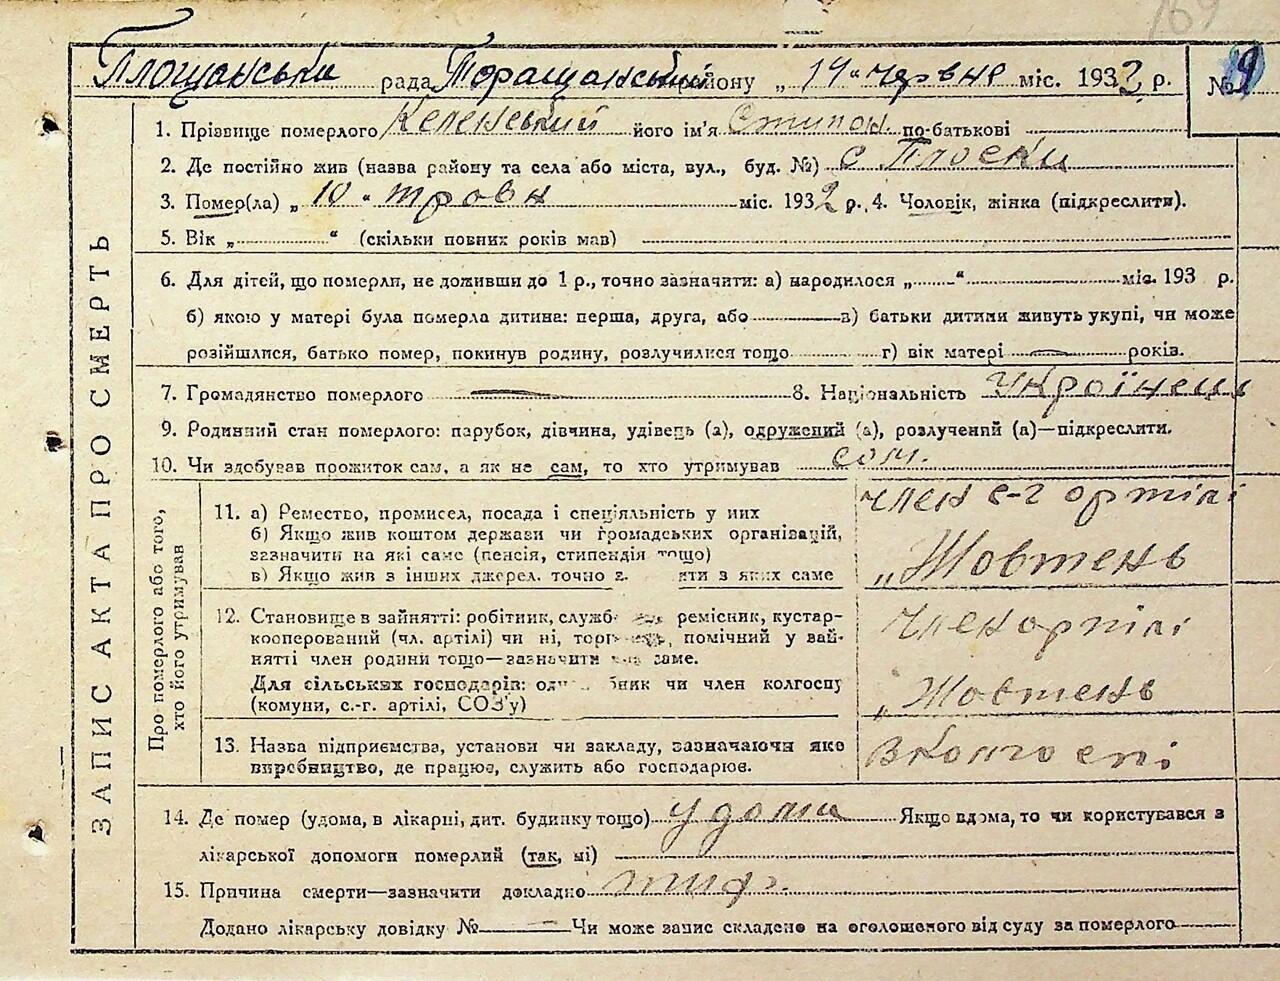 169
Площанська рада Торащанський району „14“ червня міс. 1932 р. № 9
1. Прізвище померлого Келенський його ім'я Стипон. по-батькові
2. Де постійно жив (назва району та села або міста, вул., буд. №) с Плоски
3. Помер(ла) „10“ травн міс. 1932 р. 4. Чоловік, жінка (підкреслити).
5. Вік „ “ (скільки повних років мав)
6. Для дітей, що померли, не доживши до 1 р., точно зазначити: а) народилося „ “ міс. 193 р.
б) якою у матері була померла дитина: перша, друга, або в) батьки дитини живуть укупі, чи може
розійшлися, батько помер, покинув родину, розлучилися тощо г) вік матері — років.
7. Громадянство померлого — 8. Національність Українець
9. Родинний стан померлого: парубок, дівчина, удівець (а), одружений (а), розлучений (а)—підкреслити.
10. Чи здобував прожиток сам, а як не сам, то хто утримував сам.
ЗАПИС АКТА ПРО СМЕРТЬ
Про померлого або того,
хто його утримував
11. а) Ремество, промисел, посада і спеціяльність у них
б) Якщо жив коштом держави чи громадських організацій,
зазначити на які саме (пенсія, стипендія тощо)
в) Якщо жив з інших джерел. точно з яких саме
член с-г ортілі
„Жовтень
12. Становище в зайнятті: робітник, служб ремісник, кустар-
кооперований (чл. артілі) чи ні, помічний у зай-
нятті член родини тощо—зазначити саме.
Для сільських господарів: одн бник чи член колгоспу
(комуни, с.-г. артілі, СОЗ'у)
член ортілі
„Жовтень
13. Назва підприємства, установи чи закладу, зазначаючи яке
виробництво, де працює, служить або господарює.
в колгоспі
14. Де помер (удома, в лікарні, дит. будинку тощо) удома Якщо вдома, то чи користувався з
лікарської допомоги померлий (так, ні)
15. Причина смерти—зазначити докладно тиф.
Додано лікарську довідку № — Чи може запис складено на оголошеного від суду за померлого